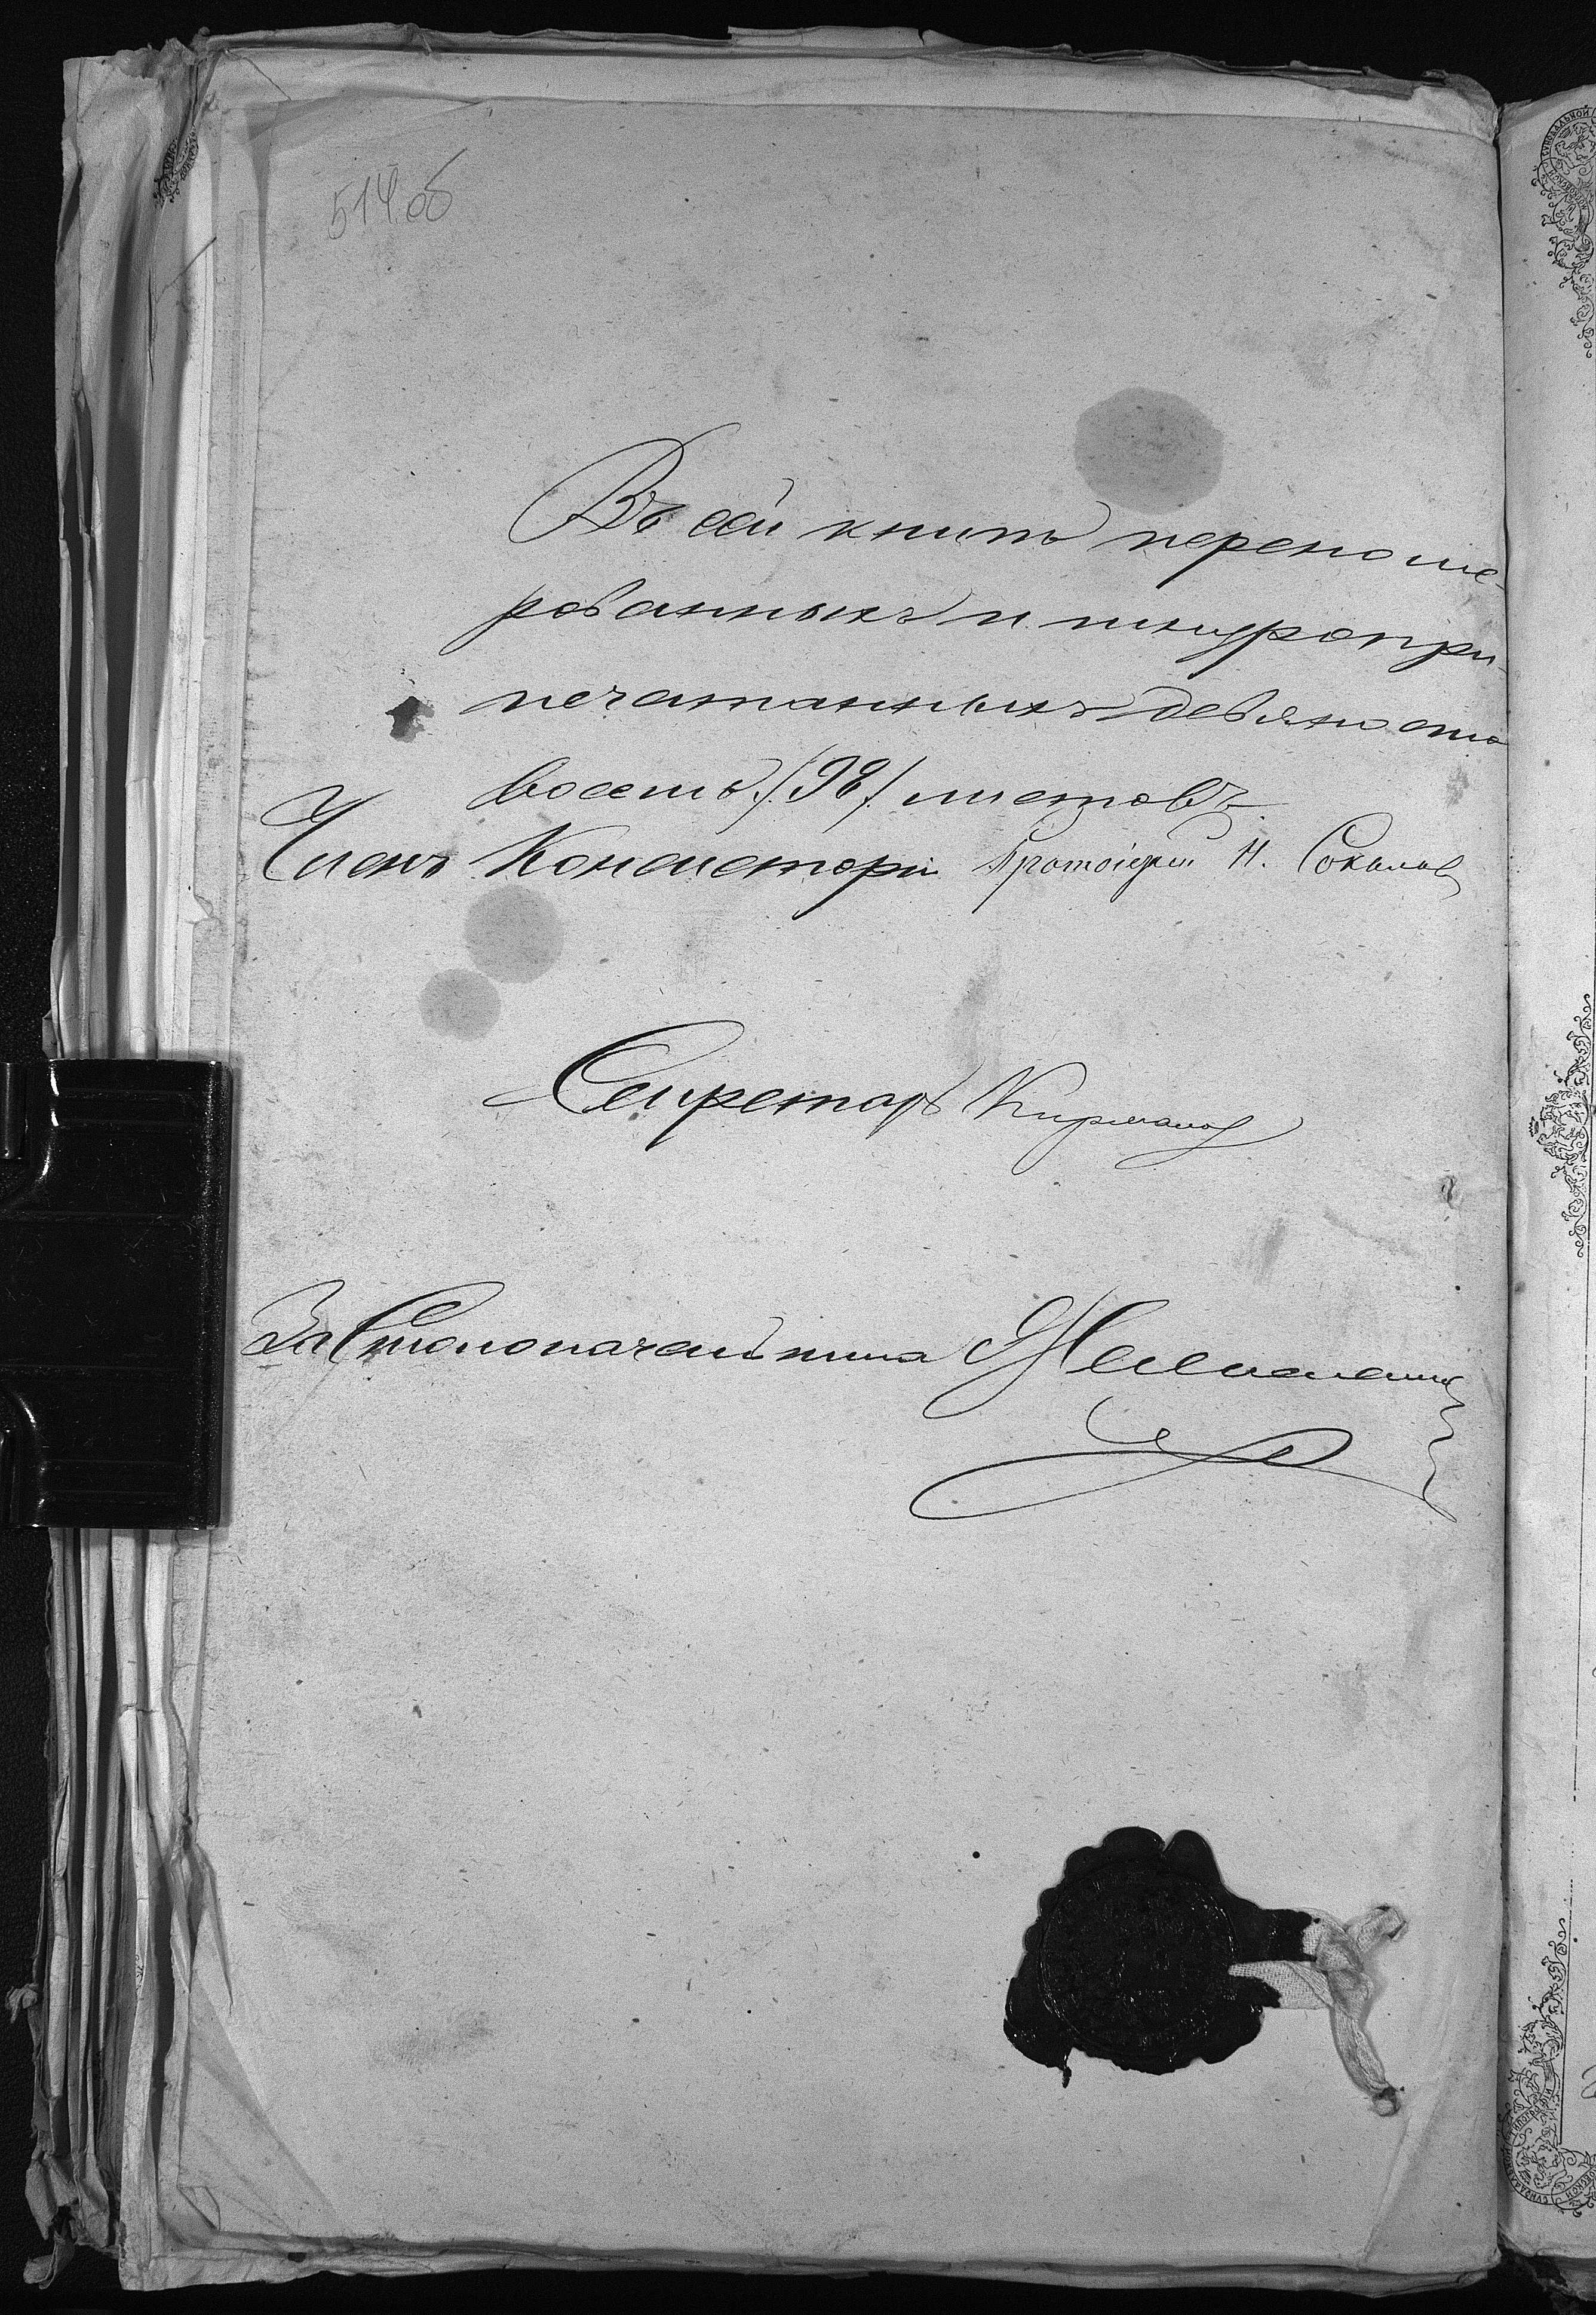 514 об
Въ сей книгѣ переноме-
рованныхъ и шнуропри-
печатанныхъ девяносто
восемь /98/ листовъ
Членъ Консисторіи Протоіерей Н. Соколовъ
Секретарь
За Столоначальника